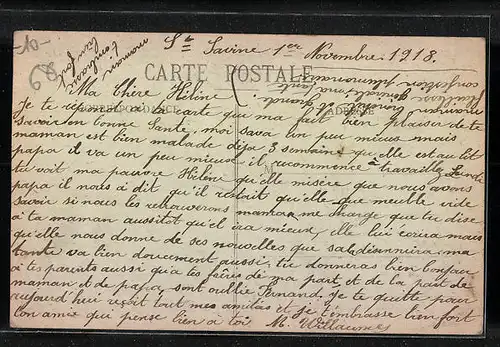 -10-
68
maman
t'embrasse
bien fort
Ste Savine 1er Novembre 1918.
CARTE POSTALE
CORRESPONDANCE
ADRESSE
Ma Chère Hélène
Je te répond à ta carte qui ma fait bien plaisir de te
savoir en bonne Santé, moi sava un peu mieux mais
maman est bien malade déja 3 semaine qu'elle est au lit
papa il va un peu mieux il recommence à travaille Lundi
tu voit ma pauvre Hélène qu'elle misère que nous avons
papa il nous à dit qu'il restait que meuble vide
savoir si nous les retrouverons maman me charge que tu dise
à ta maman aussitot qu'el ira mieux, elle lui écrira mais
qu'elle nous donne de ses nouvelles que sa
tante va bien doucement aussi, tu donneras bien
à tes parents aussi qu'a tes frères de ma part et de la part de
maman et de papa, sont oublié Fernand. Je te quitte pour
aujourd'hui reçoit tout mes amitiés et je t'embrasse bien fort
ton amie qui pense bien à toi M. Willaumes